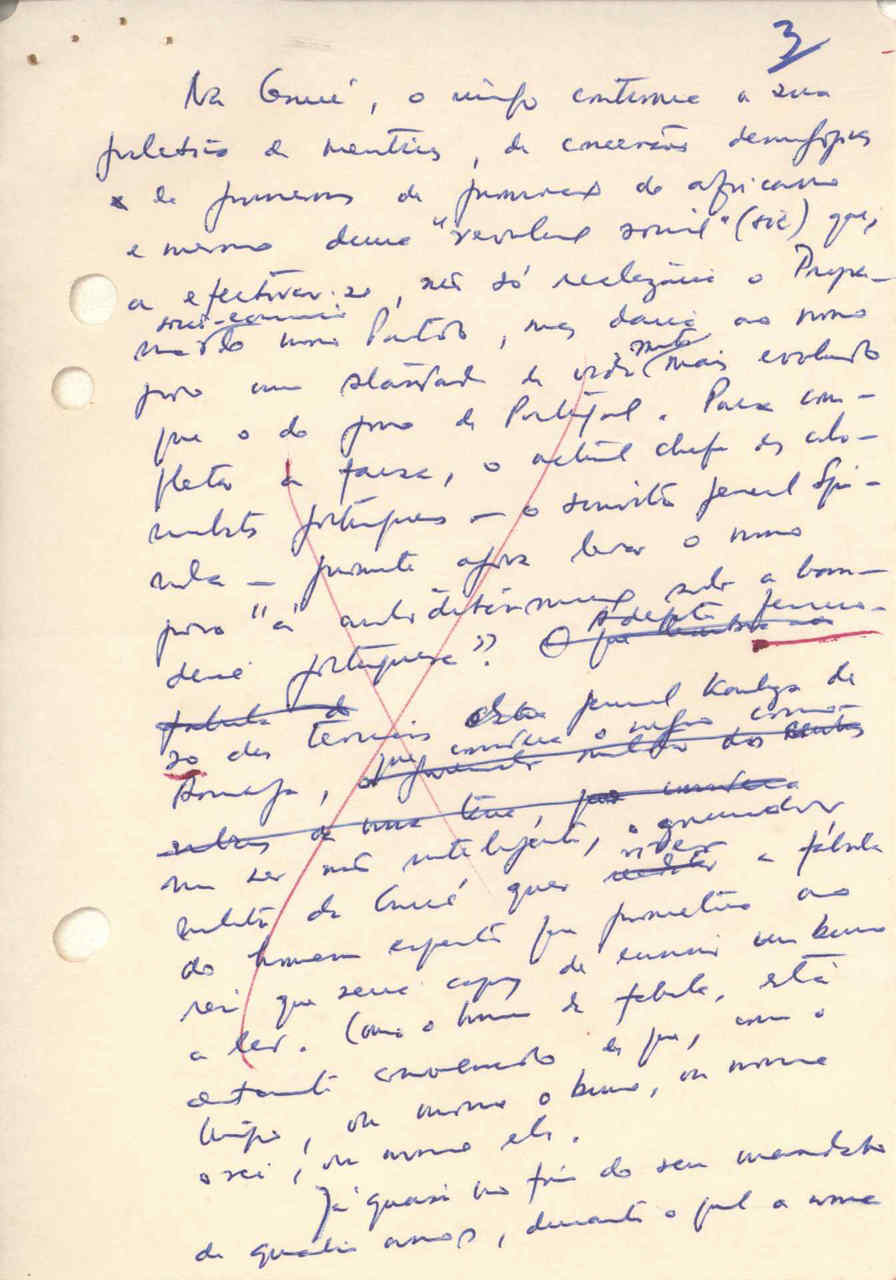 3
Na Guiné, o inimigo continua a sua
política de mentiras, de concessões demagógicas
e de promessas de promoção do africano
e mesmo duma "revolução social" (sic) que,
a efectivar-se, não só realizaria o Progra-
socio-económico
ma do nosso Partido, mas daria ao nosso
muito
povo um standard de vida mais evoluído
que o do povo de Portugal. Para com-
pletar a farsa, o actual chefe dos colo-
nialistas portugueses — o general Spí-
nola — promete agora levar o nosso
povo "à autodeterminação sob a ban-
deira portuguesa".
O
fabula do
so das teorias deste general
que considera o negro como
um ser não inteligente, o governador
militar da Guiné quer viver a fábula
do homem esperto que prometeu ao
rei que seria capaz de ensinar um burro
a ler. Como o homem da fábula, está
convencido de que, com o
tempo, ou morre o burro, ou morre
o rei, ou morre ele.
Já quase no fim do seu mandato
de quatro anos, durante o qual a nossa